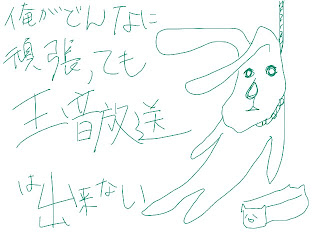 俺がどんなに
頑張っても
玉音放送
は出来ない